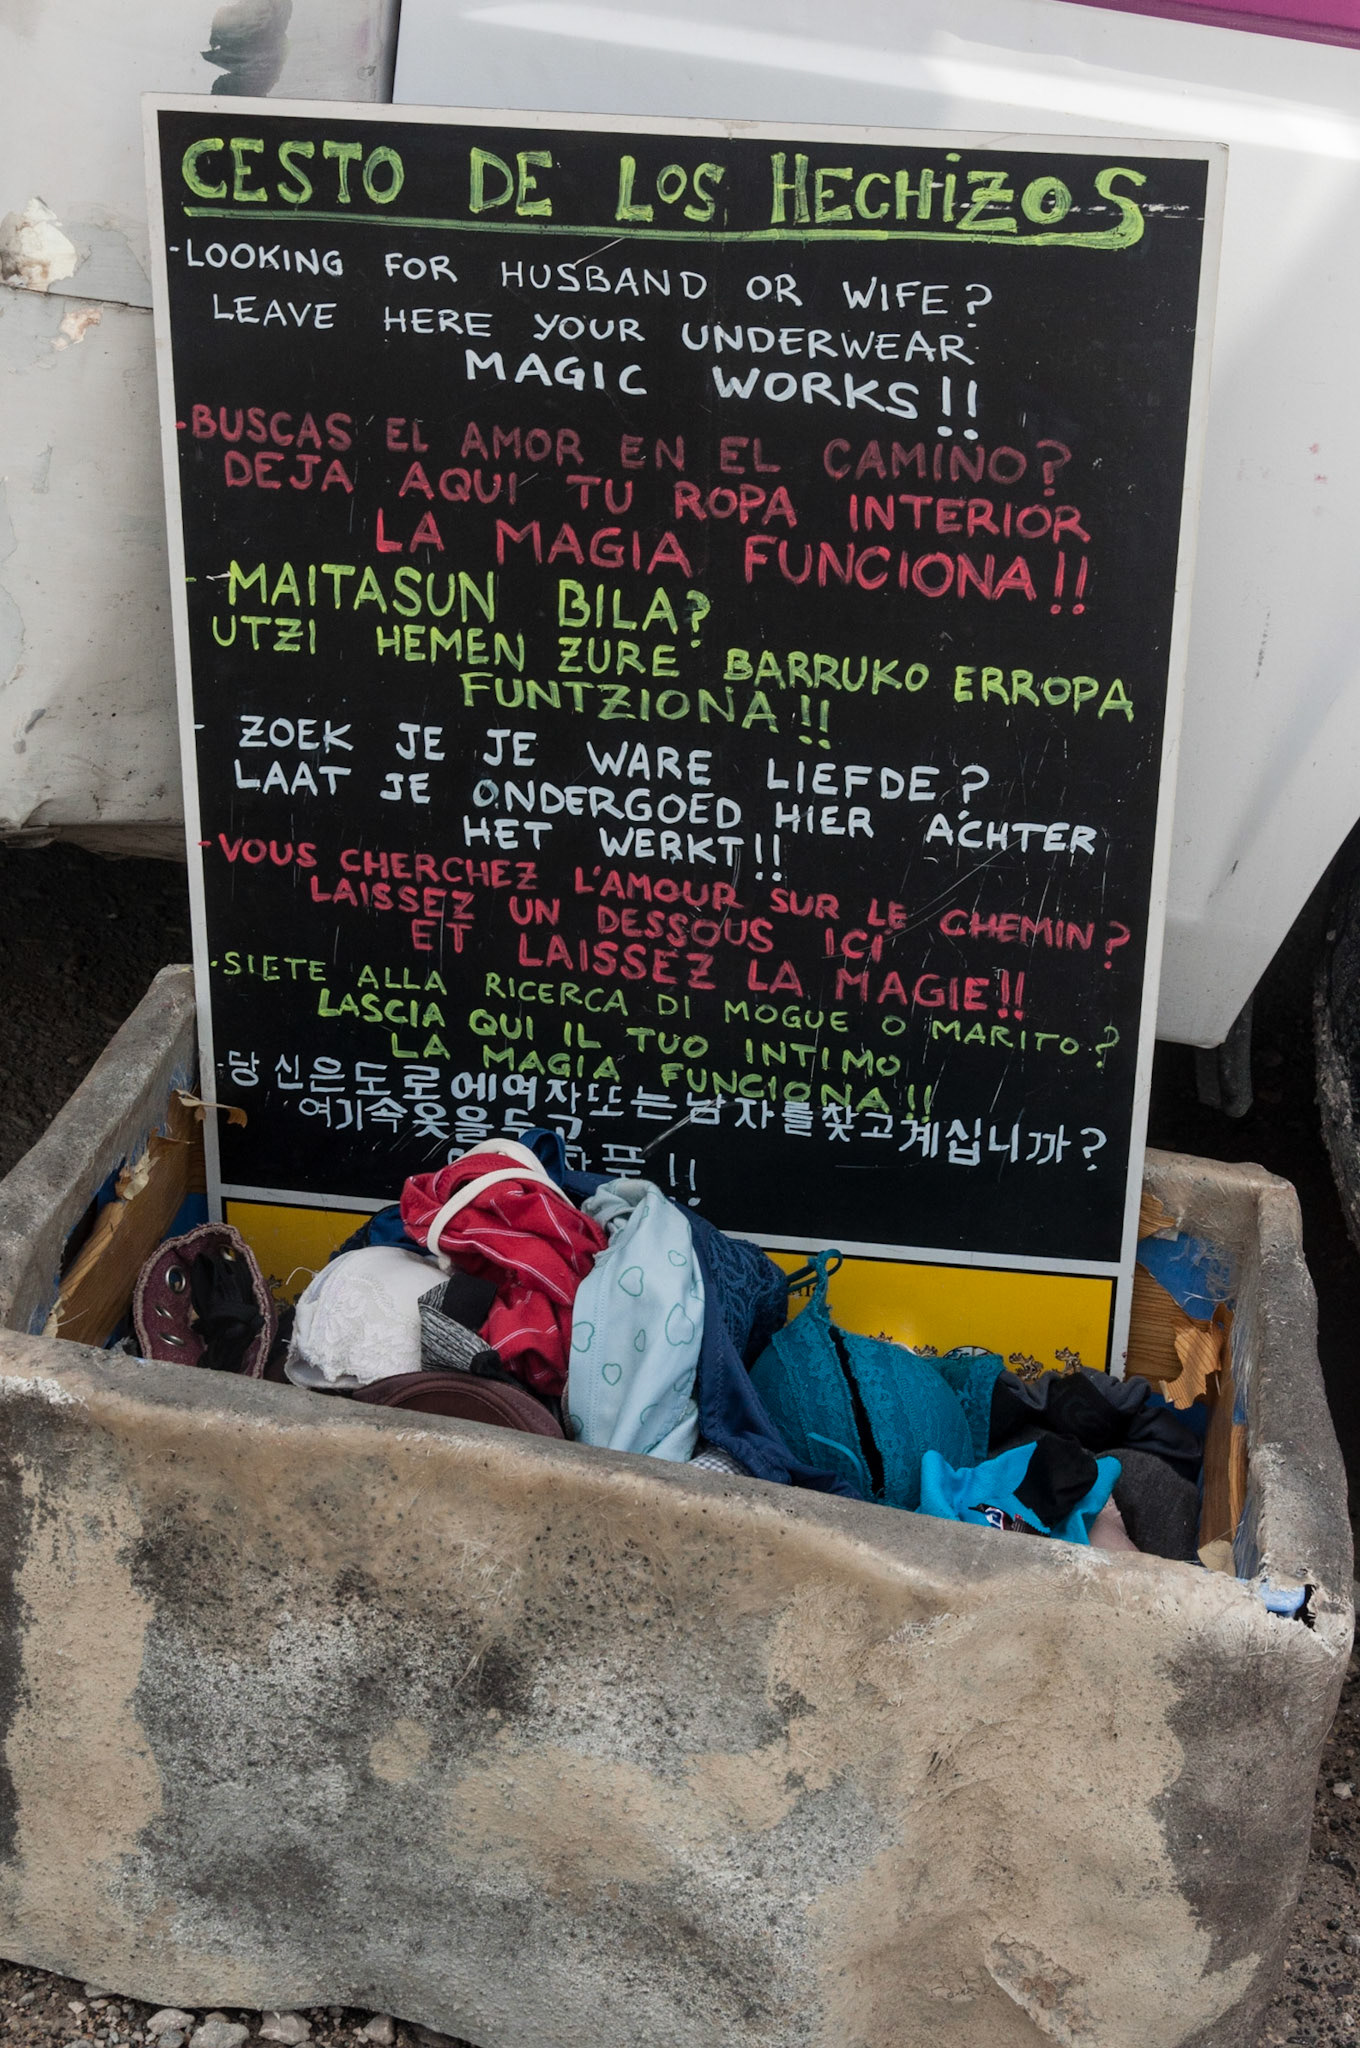 CESTO DE LOS HECHIZOS
-LOOKING FOR HUSBAND OR WIFE?
LEAVE HERE YOUR UNDERWEAR
MAGIC WORKS!!
-BUSCAS EL AMOR EN EL CAMINO?
DEJA AQUI TU ROPA INTERIOR
LA MAGIA FUNCIONA!!
-MAITASUN BILA?
UTZI HEMEN ZURE BARRUKO ERROPA
FUNTZIONA!!
- ZOEK JE JE WARE LIEFDE?
LAAT JE ONDERGOED HIER ACHTER
HET WERKT!!
-VOUS CHERCHEZ L'AMOUR SUR LE CHEMIN?
LAISSEZ UN DESSOUS ICI
ET LAISSEZ LA MAGIE!!
-SIETE ALLA RICERCA DI MOGUE O MARITO?
LASCIA QUI IL TUO INTIMO
LA MAGIA FUNCIONA!!
-당신은도로에여자또는남자를찾고계십니까?
여기속옷을두고
!!